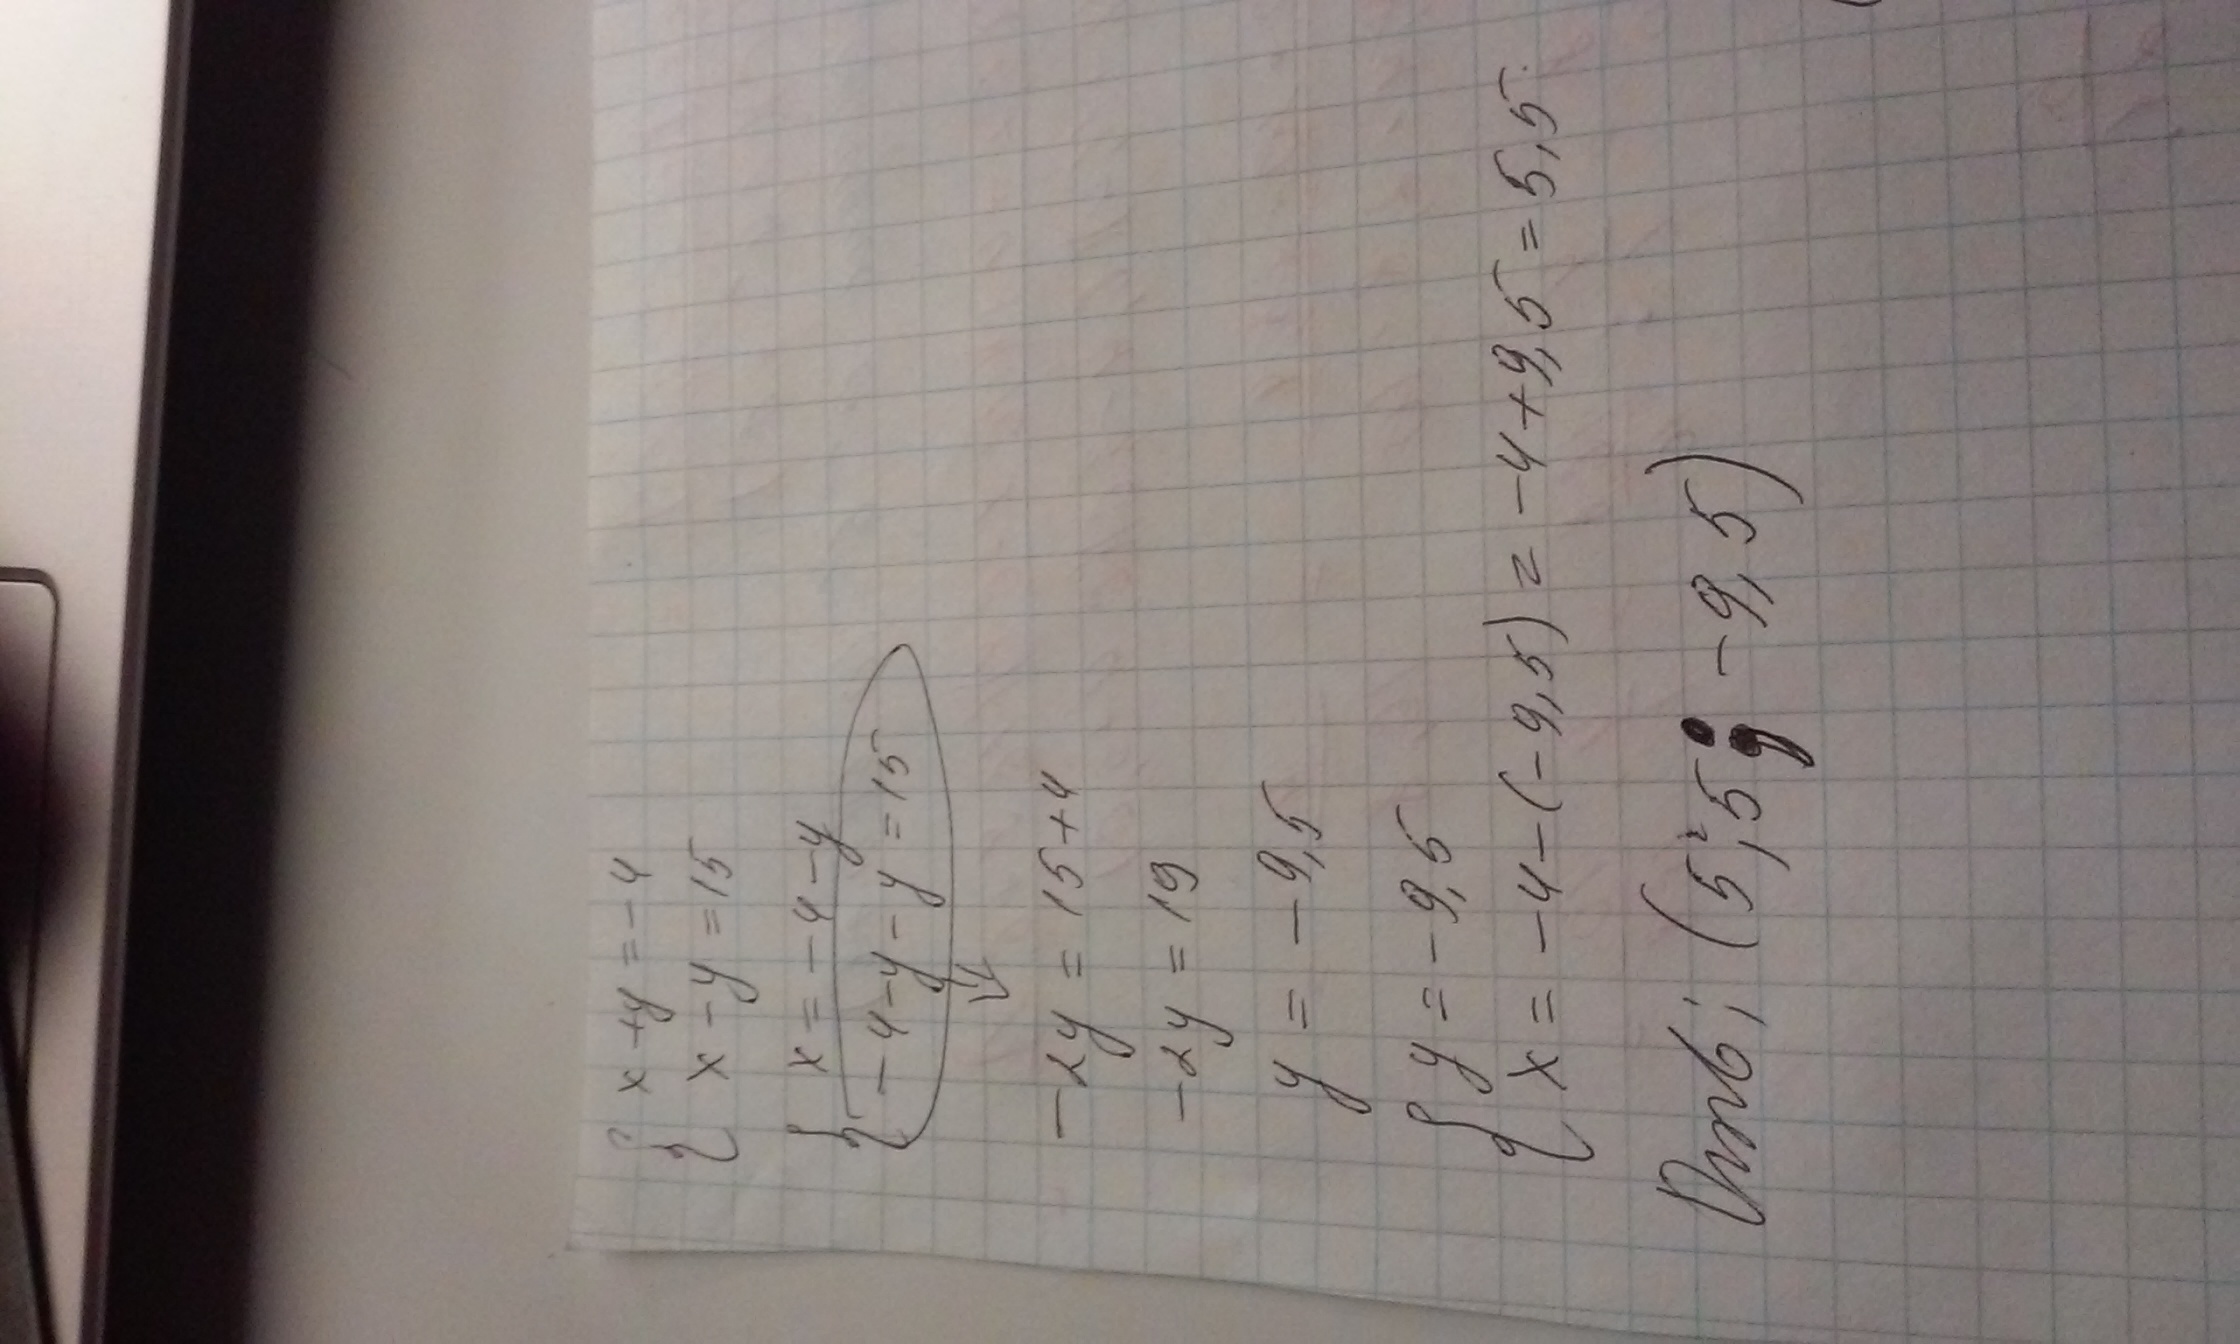 { x + y = -4
x - y = 15
{ x = -4 - y
-4 - y - y = 15
-2y = 15 + 4
-2y = 19
y = -9,5
{ y = -9,5
x = -4 - (-9,5) = -4 + 9,5 = 5,5
Отв: (5,5; -9,5)